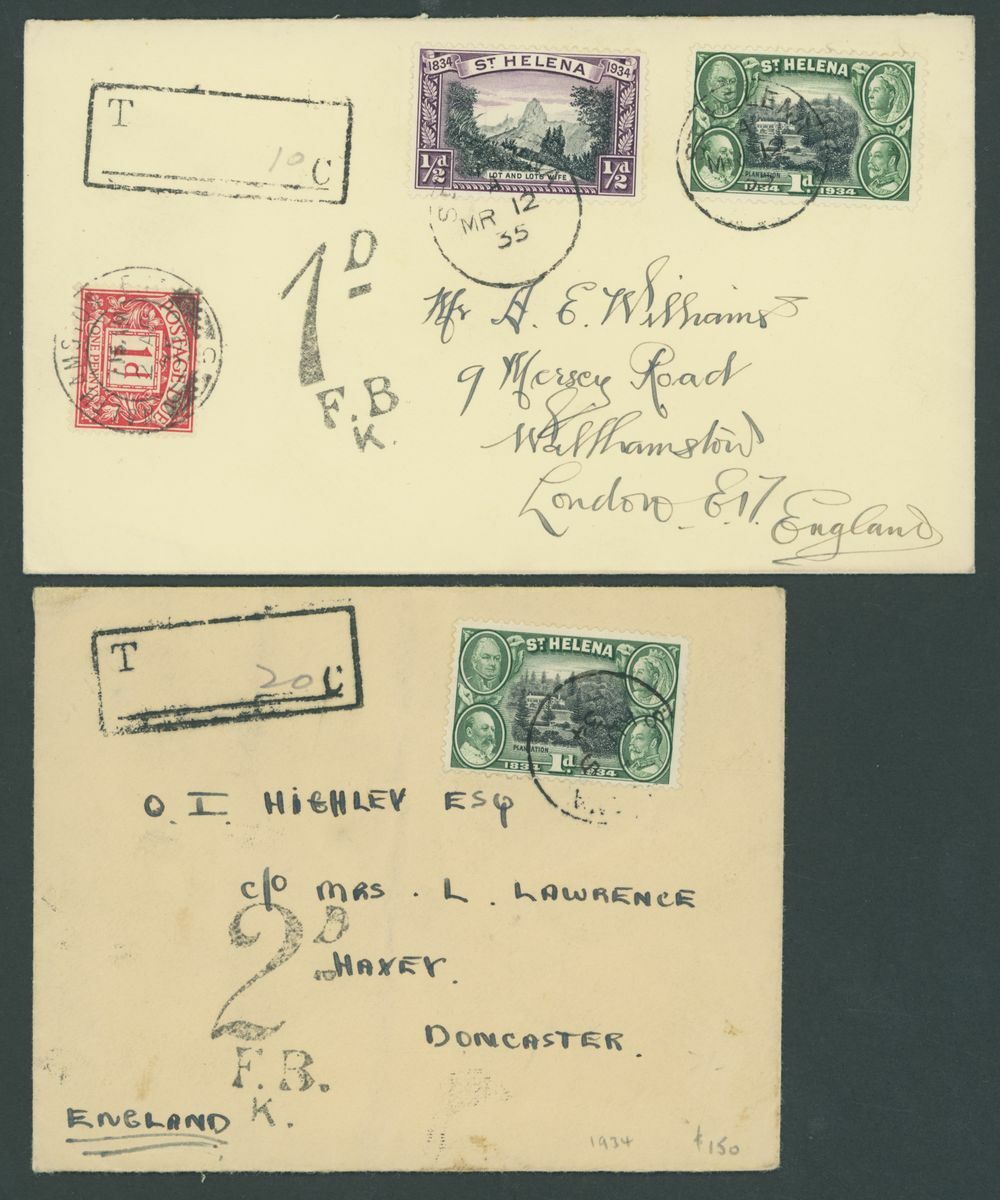 T
10 C
1834 ST HELENA 1934
1/2d LOT AND LOTS WIFE 1/2d
MR 12
35
ST HELENA
PLANTATION
1834 1d. 1934
POSTAGE DUE
1d
ONE PENNY
1D
F.B
K.
Mr A. E. Williams
9 Mersey Road
Walthamstow
London E17.
England
T
20 C
ST HELENA
PLANTATION
1834 1d. 1934
O. I. HIGHLEY ESQ
c/o MRS. L. LAWRENCE
2D
HAXEY.
DONCASTER.
F.B.
K.
ENGLAND
1934 £150